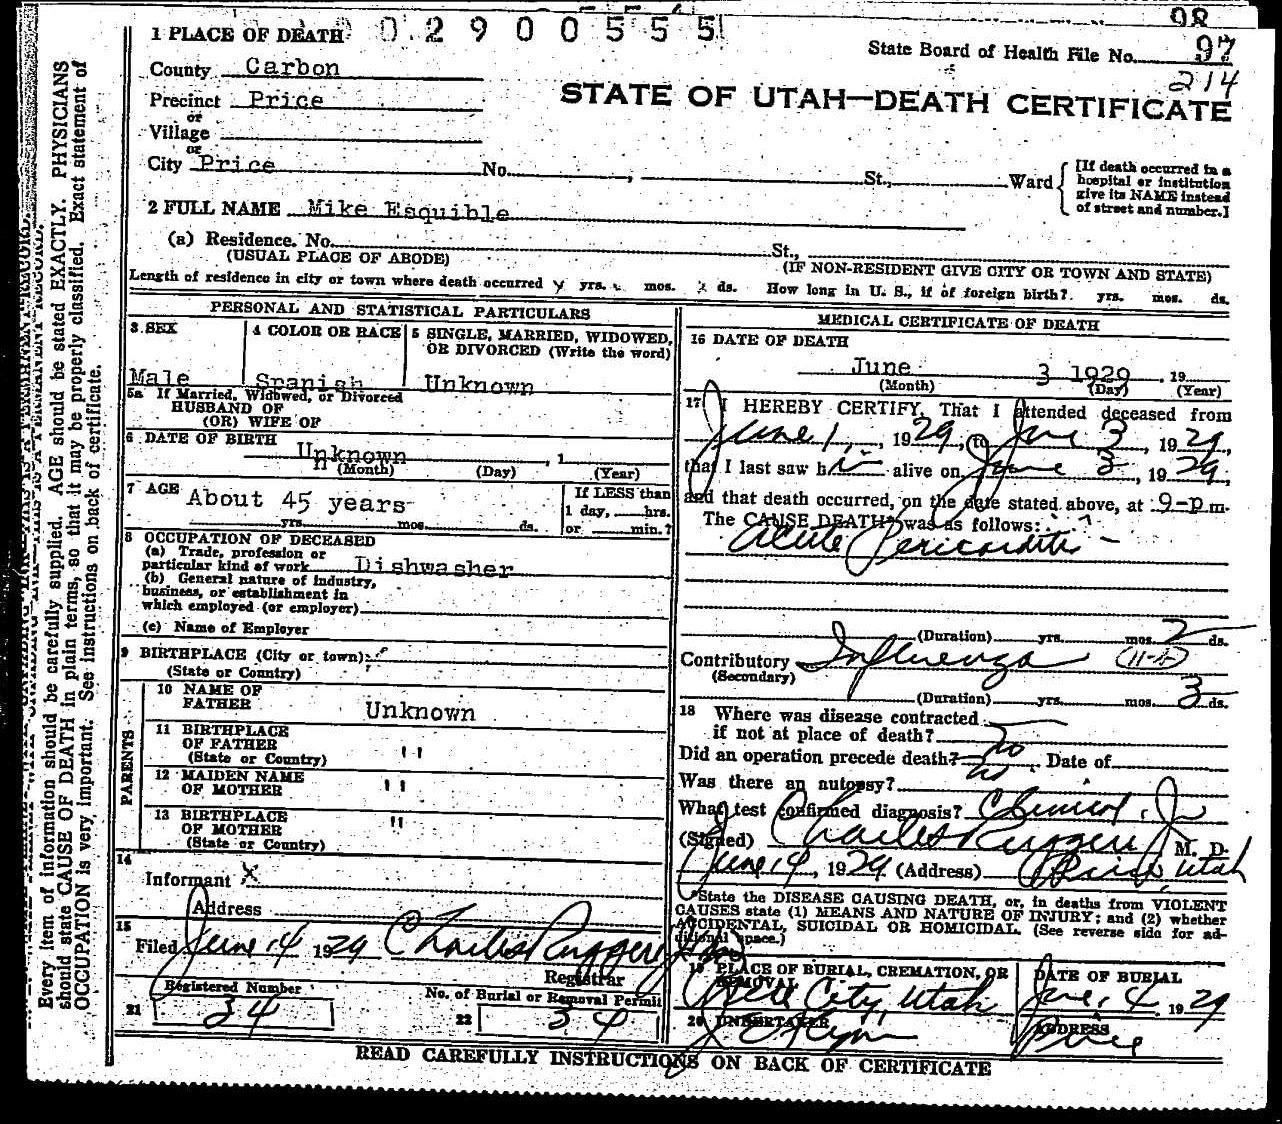 98
1 PLACE OF DEATH 02900555
State Board of Health File No. 97
214
County Carbon
STATE OF UTAH—DEATH CERTIFICATE
Precinct Price
or
Village
or
City Price No. , St., Ward
[If death occurred in a
hospital or institution
give its NAME instead
of street and number.]
2 FULL NAME Mike Esquible
(a) Residence. No. St.,
(USUAL PLACE OF ABODE) (IF NON-RESIDENT GIVE CITY OR TOWN AND STATE)
Length of residence in city or town where death occurred yrs. mos. ds. How long in U. S., if of foreign birth? yrs. mos. ds.
PERSONAL AND STATISTICAL PARTICULARS
3 SEX
Male
4 COLOR OR RACE
Spanish
5 SINGLE, MARRIED, WIDOWED,
OR DIVORCED (Write the word)
Unknown
5a If Married, Widowed, or Divorced
HUSBAND OF
(OR) WIFE OF
6 DATE OF BIRTH
Unknown , 1
(Month) (Day) (Year)
7 AGE About 45 years
yrs. mos. ds.
If LESS than
1 day, hrs.
or min.?
8 OCCUPATION OF DECEASED
(a) Trade, profession or
particular kind of work Dishwasher
(b) General nature of industry,
business, or establishment in
which employed (or employer)
(c) Name of Employer
9 BIRTHPLACE (City or town)
(State or Country)
PARENTS
10 NAME OF
FATHER Unknown
11 BIRTHPLACE
OF FATHER "
(State or Country)
12 MAIDEN NAME
OF MOTHER "
13 BIRTHPLACE
OF MOTHER "
(State or Country)
14
Informant X
Address
15
Filed June 4 1929 Charles Ruggeri Jr
Registrar
Registered Number
21 34
No. of Burial or Removal Permit
22 34
MEDICAL CERTIFICATE OF DEATH
16 DATE OF DEATH
June 3 1929 , 19
(Month) (Day) (Year)
17 I HEREBY CERTIFY, That I attended deceased from
June 1, , 1929, to June 3, 1929,
that I last saw him alive on June 3, 1929,
and that death occurred, on the date stated above, at 9-p m.
The CAUSE DEATH* was as follows:
Acute Pericarditis -
(Duration) yrs. mos. 2 ds.
Contributory Influenza (11-A)
(Secondary)
(Duration) yrs. mos. 3 ds.
18 Where was disease contracted
if not at place of death?
Did an operation precede death? no Date of
Was there an autopsy? no
What test confirmed diagnosis? Clinical
(Signed) Charles Ruggeri Jr M. D.
June 4, 1929 (Address) Price, Utah
*State the DISEASE CAUSING DEATH, or, in deaths from VIOLENT
CAUSES state (1) MEANS AND NATURE OF INJURY; and (2) whether
ACCIDENTAL, SUICIDAL OR HOMICIDAL. (See reverse side for ad-
ditional space.)
19 PLACE OF BURIAL, CREMATION, OR
REMOVAL
Price City, Utah
DATE OF BURIAL
June 4 1929
20 UNDERTAKER
J E Flynn
ADDRESS
Price
READ CAREFULLY INSTRUCTIONS ON BACK OF CERTIFICATE
Every item of information should be carefully supplied. AGE should be stated EXACTLY. PHYSICIANS
should state CAUSE OF DEATH in plain terms, so that it may be properly classified. Exact statement of
OCCUPATION is very important. See instructions on back of certificate.